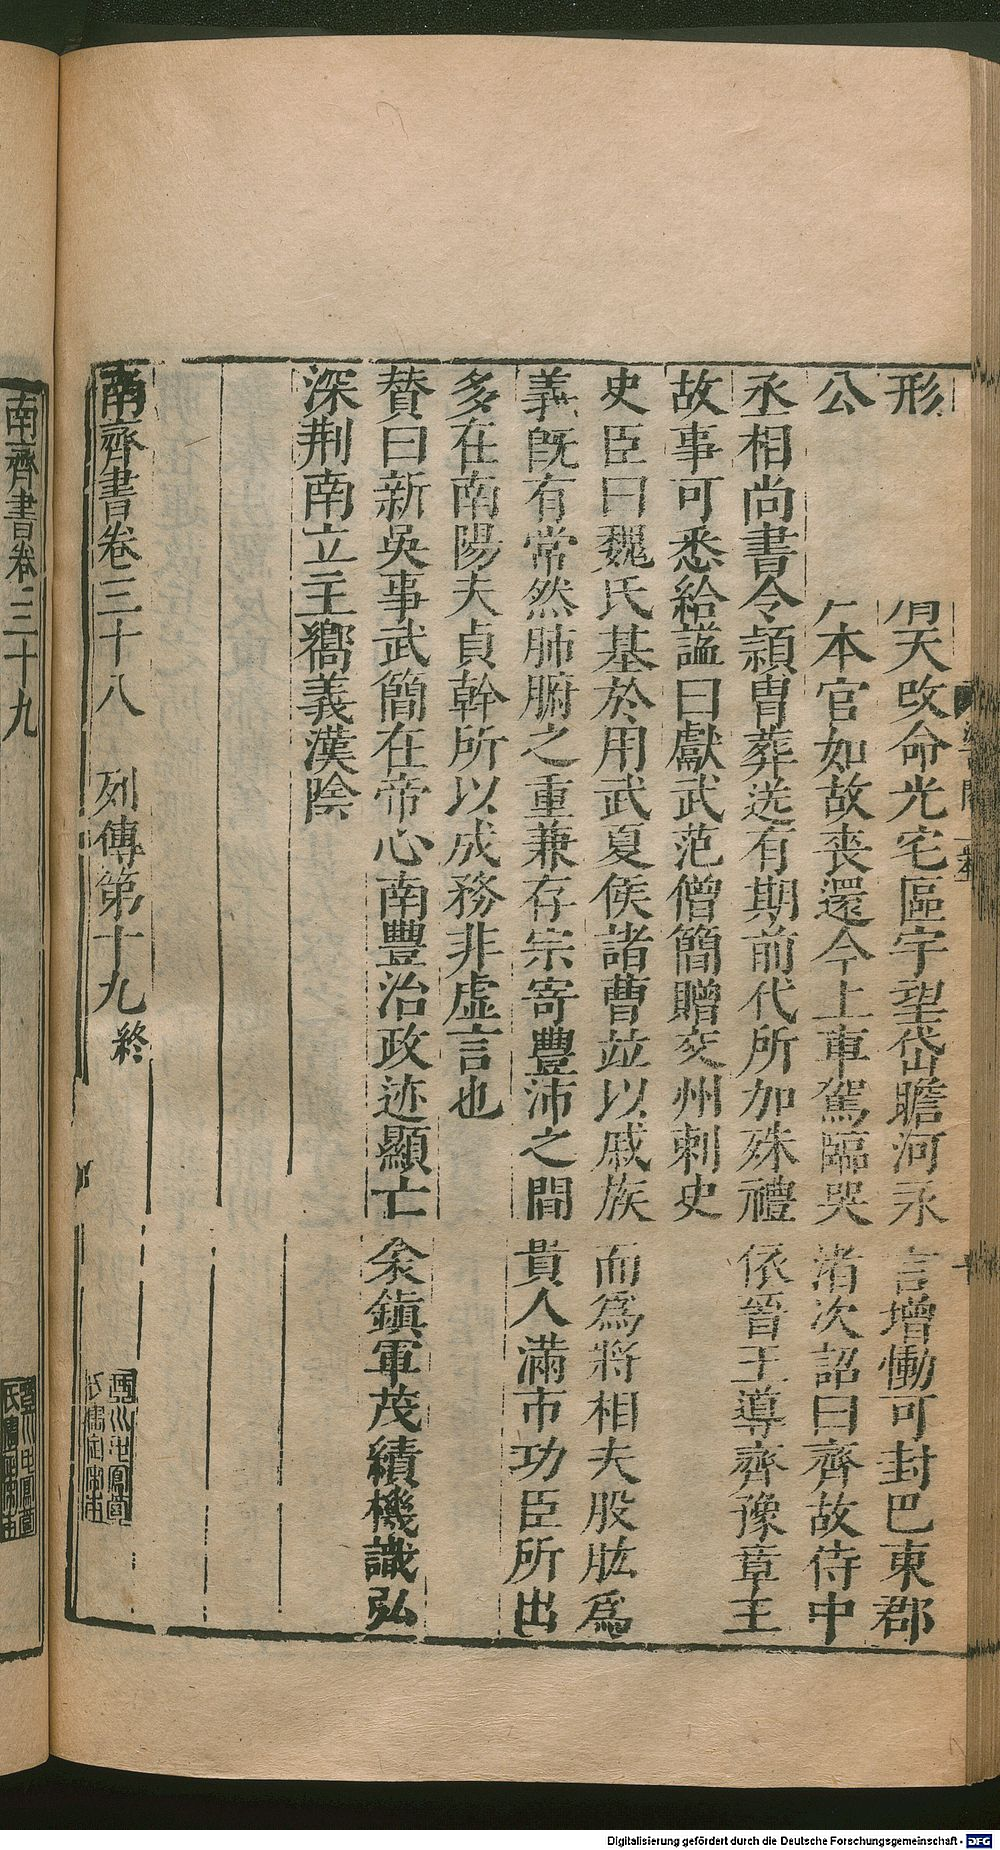 形 天改命光宅區宇望岱瞻河永言增慟可封巴東郡
公 本官如故喪還今上車駕臨哭渚次詔曰齊故侍中
丞相尚書令頴胄葬送有期前代所加殊禮依晉王導齊豫章王
故事可悉給謚曰獻武范僧簡贈交州刺史
史臣曰魏氏基於用武夏侯諸曹並以戚族而爲將相夫股肱爲
義旣有常然肺腑之重兼存宗寄豐沛之間貴人滿市功臣所出
多在南陽夫貞幹所以成務非虛言也
贊曰新吳事武簡在帝心南豐治政迹顯亡余鎭軍茂績機識弘
深荆南立主嚮義漢陰
南齊書卷三十八 列傳第十九 終
南齊書卷三十九
Digitalisierung gefördert durch die Deutsche Forschungsgemeinschaft - DFG